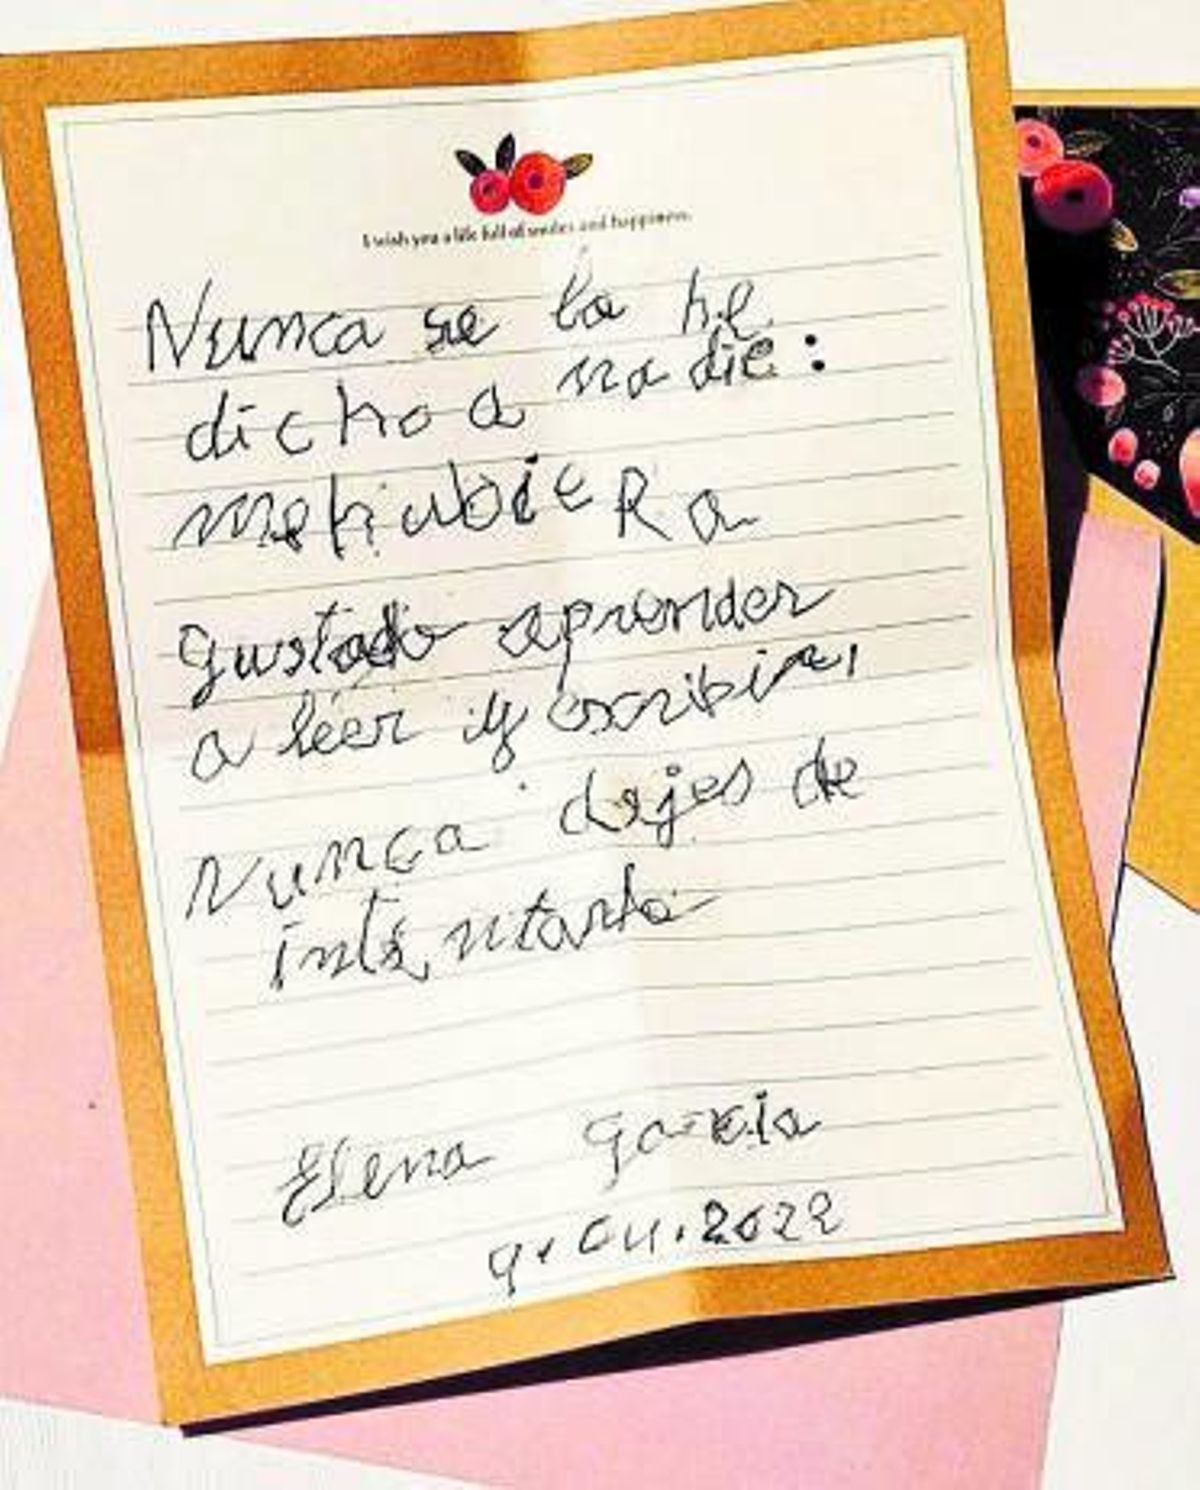 I wish you a life full of smiles and happiness.
Nunca se lo he
dicho a nadie:
me hubieRa
gustado aprender
a leer y escribir,
Nunca dejes de
intentarlo
Elena Garcia
9.04.2022